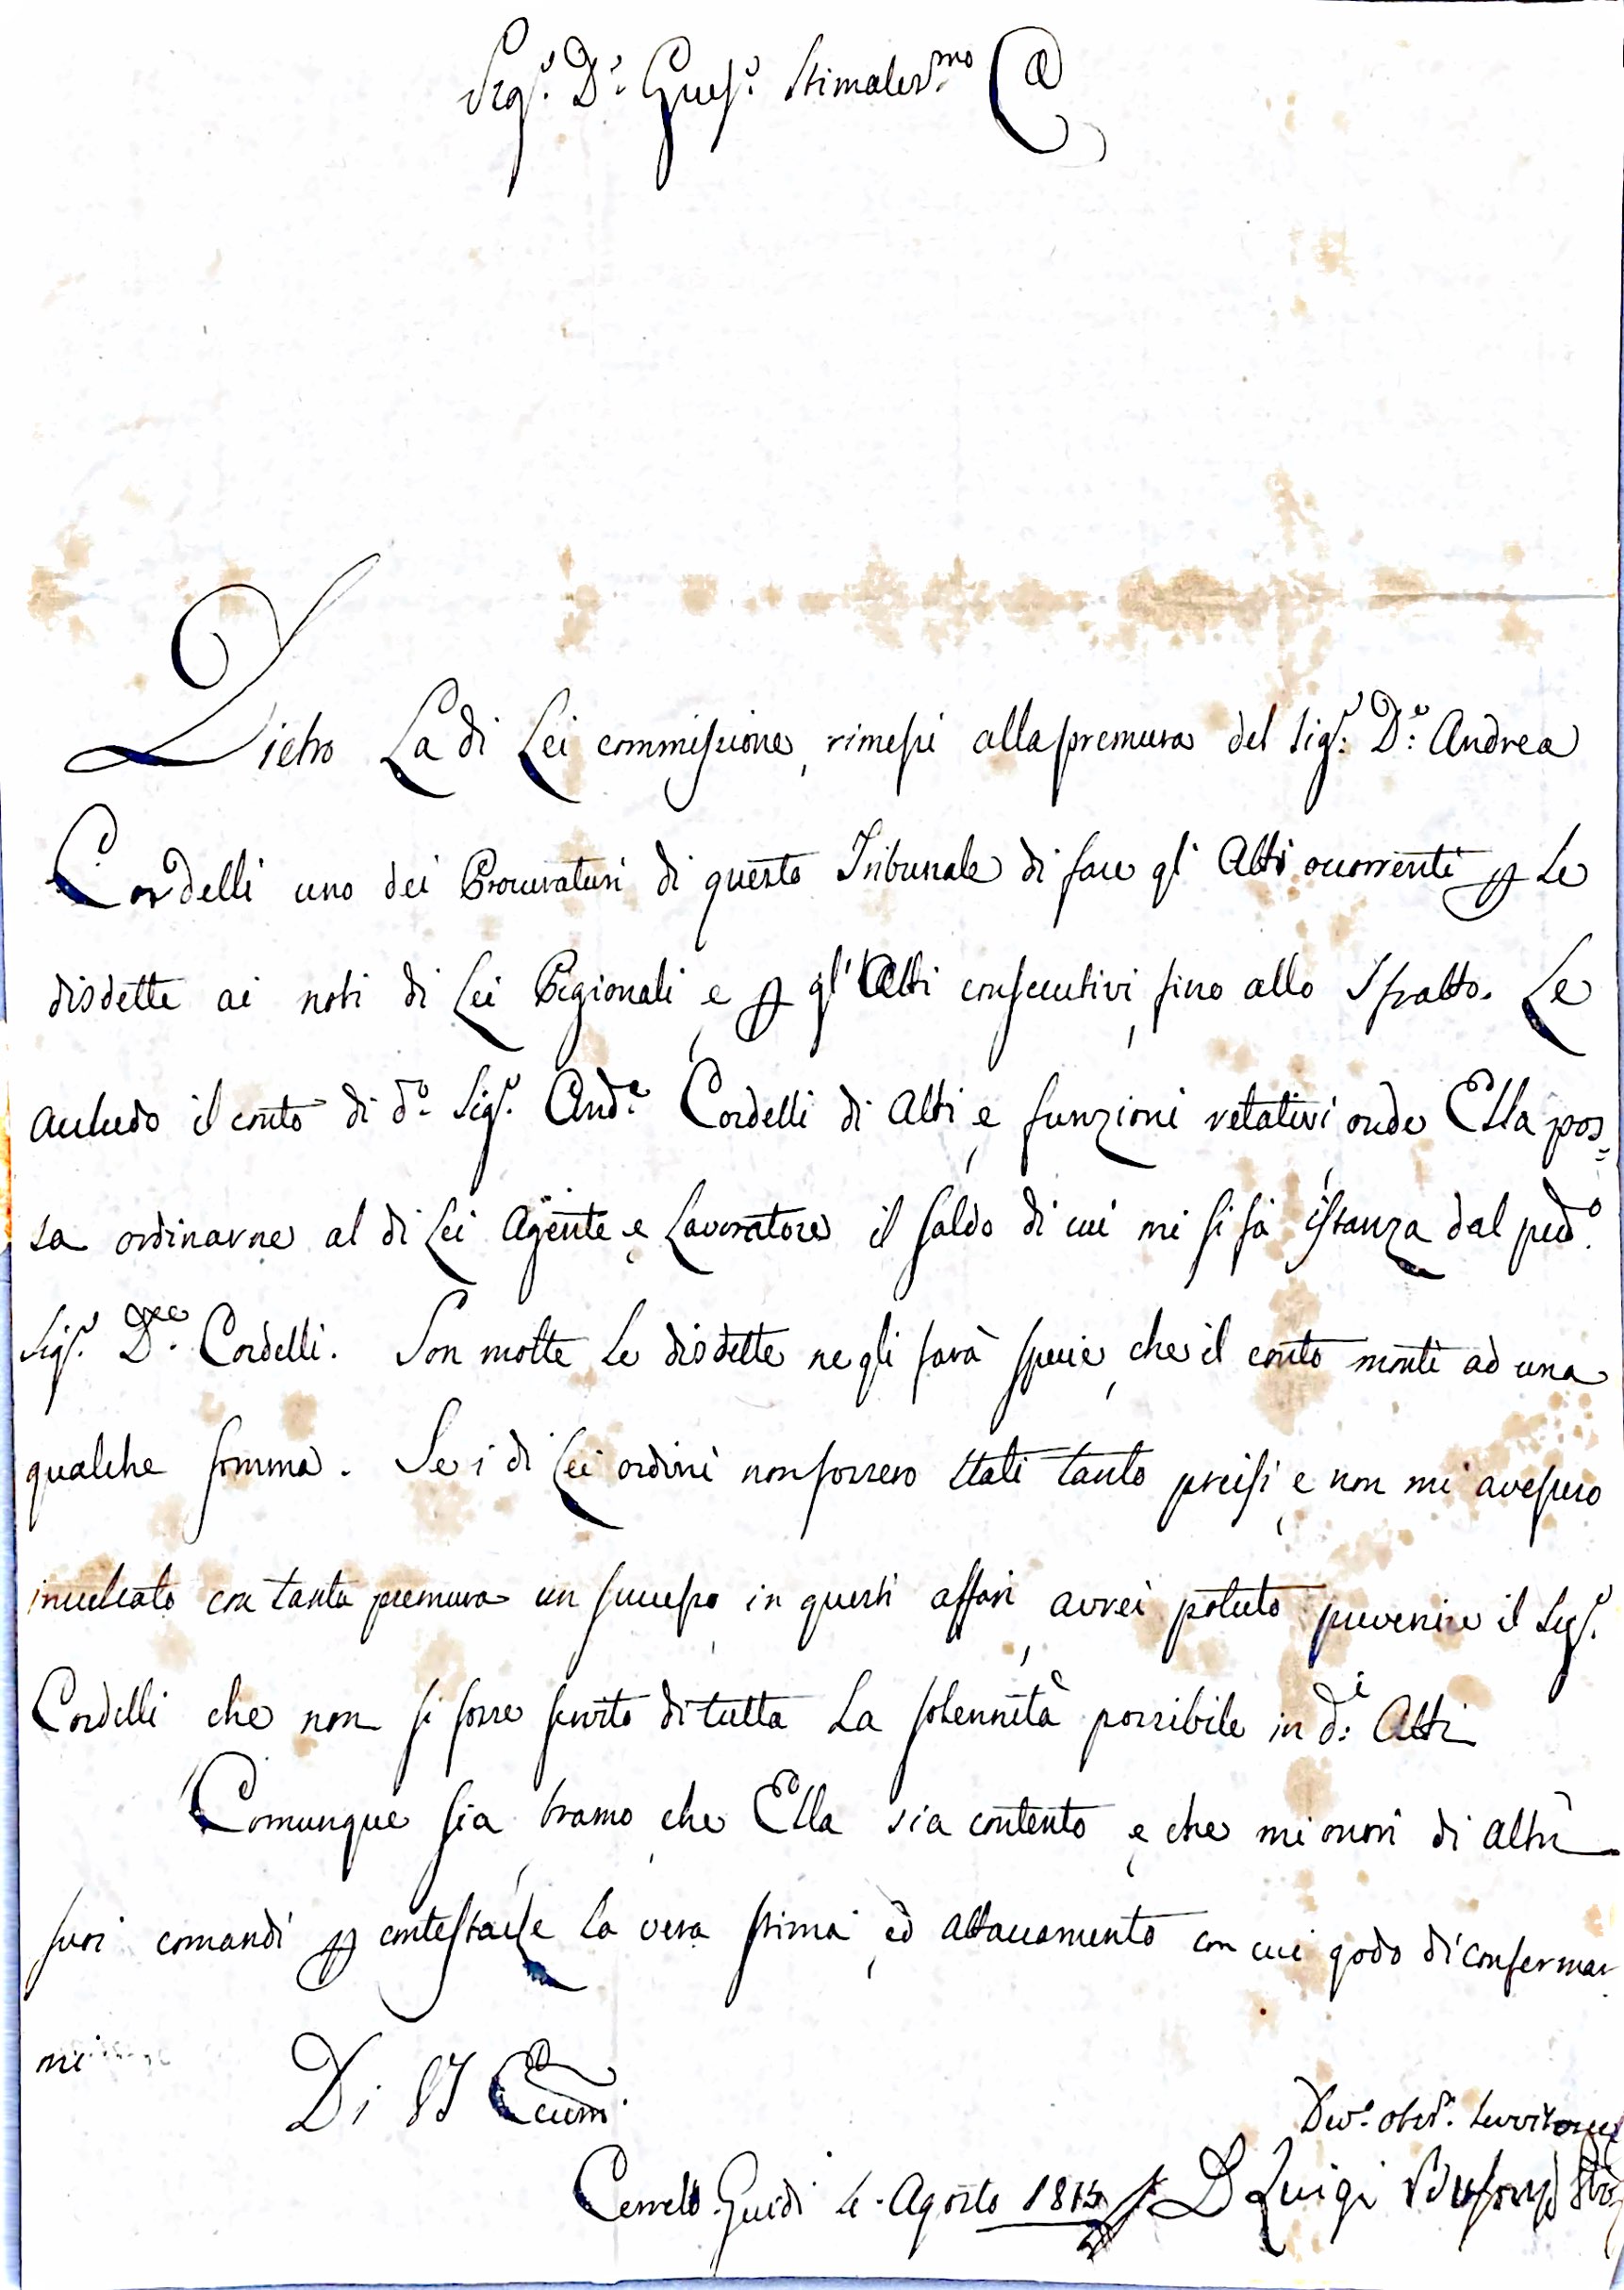 Sig.r D.r Stimatis.mo
Dietro La di Lei commissione, rimessi alla premura del Sig.r D.r Andrea
Cordelli uno dei Procuratori di questo Tribunale di fare gl' Atti occorrenti p Le
disdette ai noti di Lei Pigionali, e p gl' Atti consecutivi, fino allo Sfratto. Le
accludo il conto di d.o Sig.r And.a Cordelli di Atti, e funzioni relativi onde Ella pos=
sa ordinarne al di Lei Agente, e Lavoratore il saldo di cui mi si fà istanza dal pred.o
Sig.r D.re Cordelli. Son molte Le disdette ne gli farà specie, che il conto monti ad una
qualche somma. Se i di Lei ordini non fossero stati tanto precisi, e non mi avessero
inculcato con tanta premura un successo in questi affari, avrei potuto prevenire il Sig.r
Cordelli che non si fosse servito di tutta La solennità possibile in d.i Atti
Comunque sia bramo, che Ella sia contento, e che mi onori di altri
suoi comandi p contestarle la vera stima, ed attaccamento con cui godo di confermar
mi
Di VS Eccma.
Dev.o obb.o Servitore
Cerreto Guidi 4. Agosto D Luigi